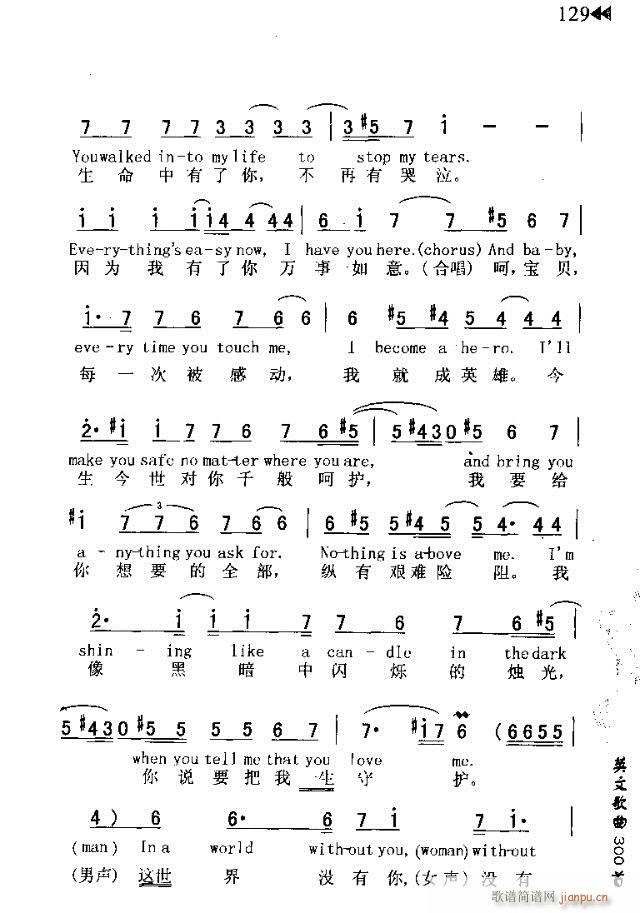 129
7 7 7 7 3 3 3 3 | 3 #5 7 i – – |
You walked in-to my life to stop my tears.
生 命 中 有 了 你, 不 再 有 哭 泣。
i i i i i 4 4 4 4 | 6 i 7 7 #5 6 7 |
Eve-ry-thing's ea-sy now, I have you here. (chorus) And ba-by,
因 为 我 有 了 你 万 事 如 意。(合唱) 呵, 宝 贝,
i· 7 7 6 7 6 6 | 6 #5 #4 5 #4 4 4 |
eve-ry time you touch me, I become a he-ro. I'll
每 一 次 被 感 动, 我 就 成 英 雄。今
2· #i i 7 7 6 7 6 #5 | 5 #4 3 0 #5 6 7 |
make you safe no mat-ter where you are, and bring you
生 今 世 对 你 千 般 呵 护, 我 要 给
#i 7 7 6 7 6 6 | 6 #5 #5 #4 5 5 4· 4 4 |
3
a-ny-thing you ask for. No-thing is a-bove me. I'm
你 想 要 的 全 部, 纵 有 艰 难 险 阻。我
2· i i i 7 7 6 7 6 #5 |
shin-ing like a can-dle in the dark
像 黑 暗 中 闪 烁 的 烛 光,
5 #4 3 0 #5 #5 5 5 6 7 | 7· #i 7 6 (6 6 5 5 |
when you tell me that you love me.
你 说 要 把 我 一 生 守 护。
4) 6 6· 6 7 i 7 i· |
(man) In a world with-out you, (woman) with-out
(男声) 这世 界 没 有 你, (女声) 没 有
英文歌曲 300 首
歌谱简谱网 jianpu.cn